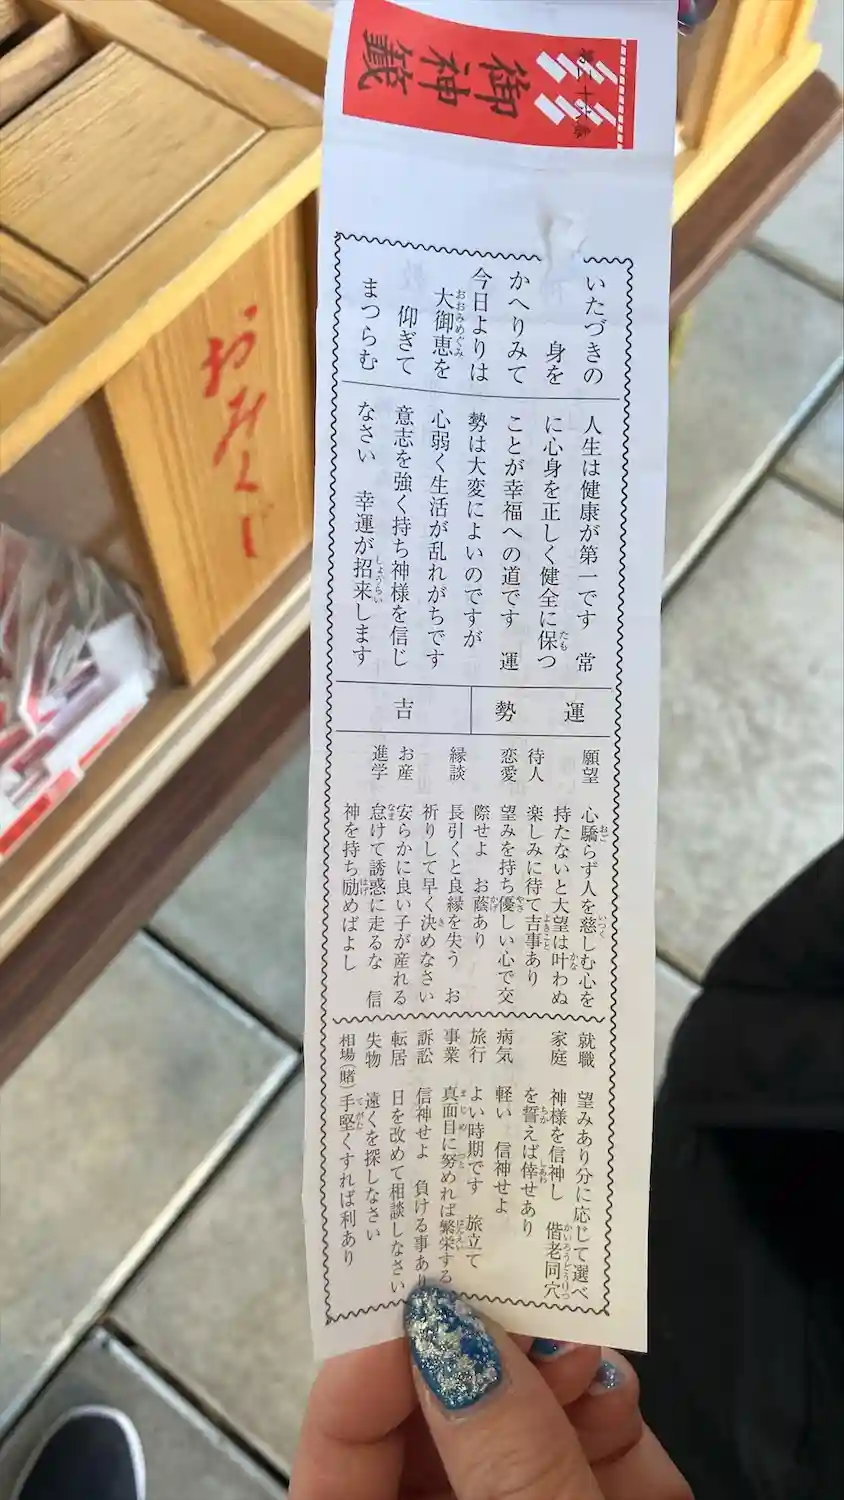 御神籤
いたづきの
身を
かへりみて
今日よりは
大御恵を
おおみめぐみ
仰ぎて
まつらむ
人生は健康が第一です 常
に心身を正しく健全に保つ
たも
ことが幸福への道です 運
勢は大変によいのですが
心弱く生活が乱れがちです
意志を強く持ち神様を信じ
なさい 幸運が招来します
しょうらい
運勢
吉
願望 心驕らず人を慈しむ心を
おご
いつく
持たないと大望は叶わぬ
かな
待人 楽しみに待て吉事あり
よきこと
恋愛 望みを持ち優しい心で交
やさ
際せよ お蔭あり
かげ
縁談 長引くと良縁を失う お
祈りして早く決めなさい
き
お産 安らかに良い子が産れる
進学 怠けて誘惑に走るな 信
なま
神を持ち励めばよし
はげ
就職 望みあり分に応じて選べ
家庭 神様を信神し 偕老同穴
かいろうどうけつ
を誓えば倖せあり
ちか
しあわ
病気 軽い 信神せよ
旅行 よい時期です 旅立て
事業 真面目に努めれば繁栄する
まじめ
つと
はんえい
訴訟 信神せよ 負ける事あり
転居 日を改めて相談しなさい
失物 遠くを探しなさい
相場(賭) 手堅くすれば利あり
てがた
おみくじ